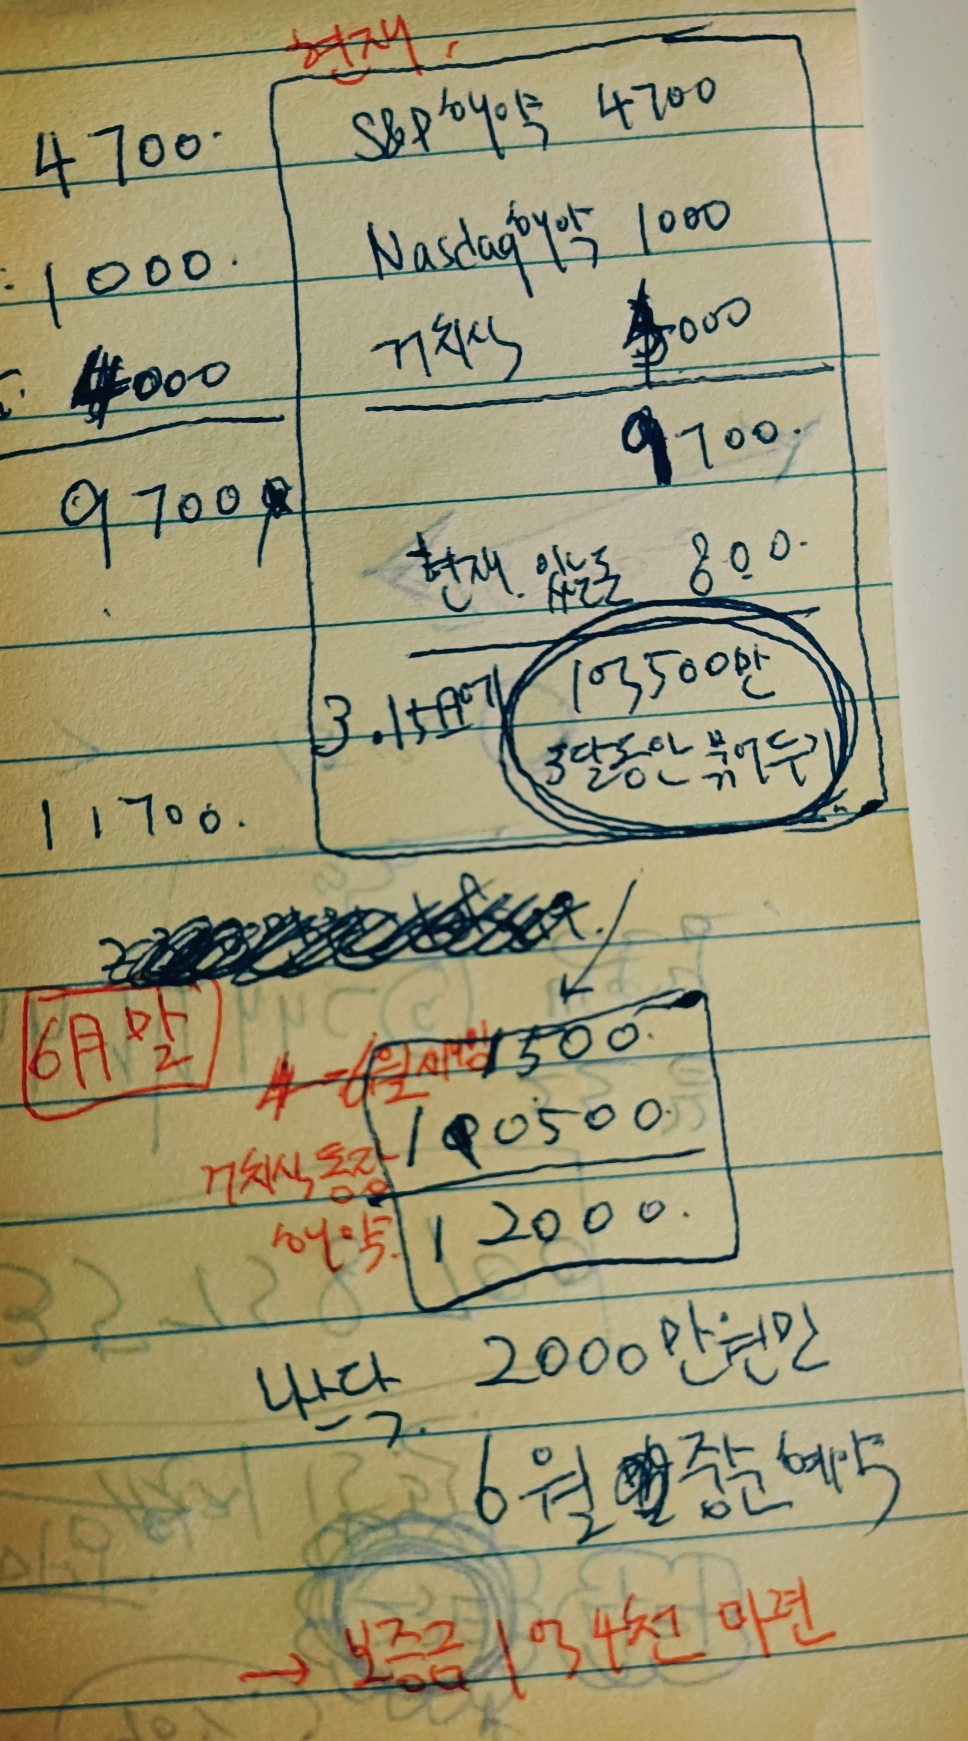 현재.
4700.
1000.
4000
9700
11700.
S&P 해약 4700
Nasdaq 해약 1000
거치식 4000
9700.
현재. 있는돈 800.
3.15日에
1억500만
3달동안 묶어두기
6月말
4-6월 1500.
거치식통장 10500.
해약. 12000.
나스닥. 2000만원만
6월 중순 해약
→ 보증금 1억4천 마련